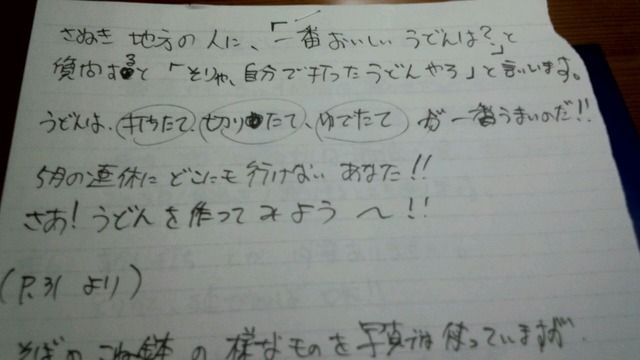 さぬき 地方の 人に、「一番おいしい うどんは?」と
質問すると 「そりゃ、自分で打ったうどんやろ」と言います。
うどんは、打ちたて、切りたて、ゆでたて が 一番うまいのだ!!
5月の連休に どこにも 行けない あなた!!
さあ! うどん を 作って みよう 〜!!
(P.31 より)
そばの こね鉢 の 様なものを 写真では 使っていますが、